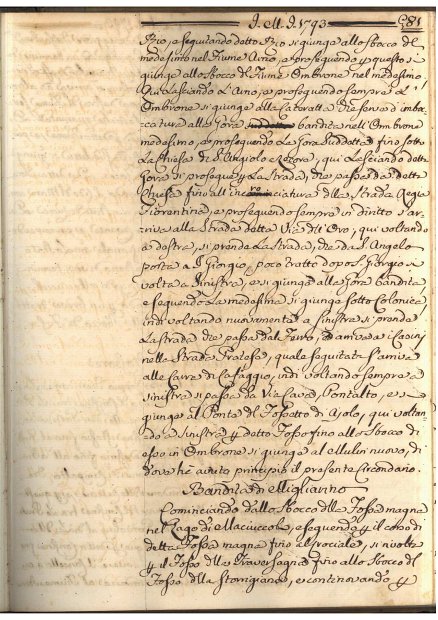 I. M. I. 1793 281
Rio, e seguitando detto Rio si giunge allo sbocco del
medesimo nel Fiume Arno, e proseguendo p questo si
giunge allo sbocco del Fiume Ombrone nel medesimo,
Qui Lasciando L'Arno, e proseguendo sempre L'
Ombrone si giunge alla Cateratta che serve d'imboc-
catura alla Gora bandita nell'Ombrone
medesimo, e proseguendo La Gora Suddetta fino sotto
La Chiesa di S. Angiolo a Lecore, qui Lasciando detta
Gora si prosegue p La Strada, che passa da detta
Chiesa fino all'incrociatura della Strada Regia
Fiorentina, e proseguendo sempre in diritto s'ar-
riva alla Strada detta Via dell'Oro, qui voltando
a destra, si prende La Strada, che da S. Angelo
porta a S. Giorgio, e poco tratto dopo S. Giorgio si
volta a Sinistra, e si giunge alla Gora bandita
e seguendo La medesima si giunge sotto Colonica,
indi voltando nuovamente a Sinistra si prende
La strada che passa dal Ferro, ed arriva a i Casini
nella Strada Pratese, quale seguitata s'arriva
alle Cave di Cafaggio, indi voltando sempre a
sinistra si passa da Via Cava, Pontalto, e si
giunge al Ponte del Fossetto di Ajolo, qui voltan-
do a sinistra p detto Fosso fino allo Sbocco di
esso in Ombrone si giunge al Mulin nuovo, di
dove ha avuto principio il presente Circondario.
Bandita di Migliarino
Cominciando dallo Sbocco della Fossa magna
nel Lago di Maciuccoli, e seguendo p il corso di
detta Fossa magna fino al crociale, si rivolta
p il Fosso della Traversagna fino allo Sbocco del
Fosso della Stornigiana, e continovando p